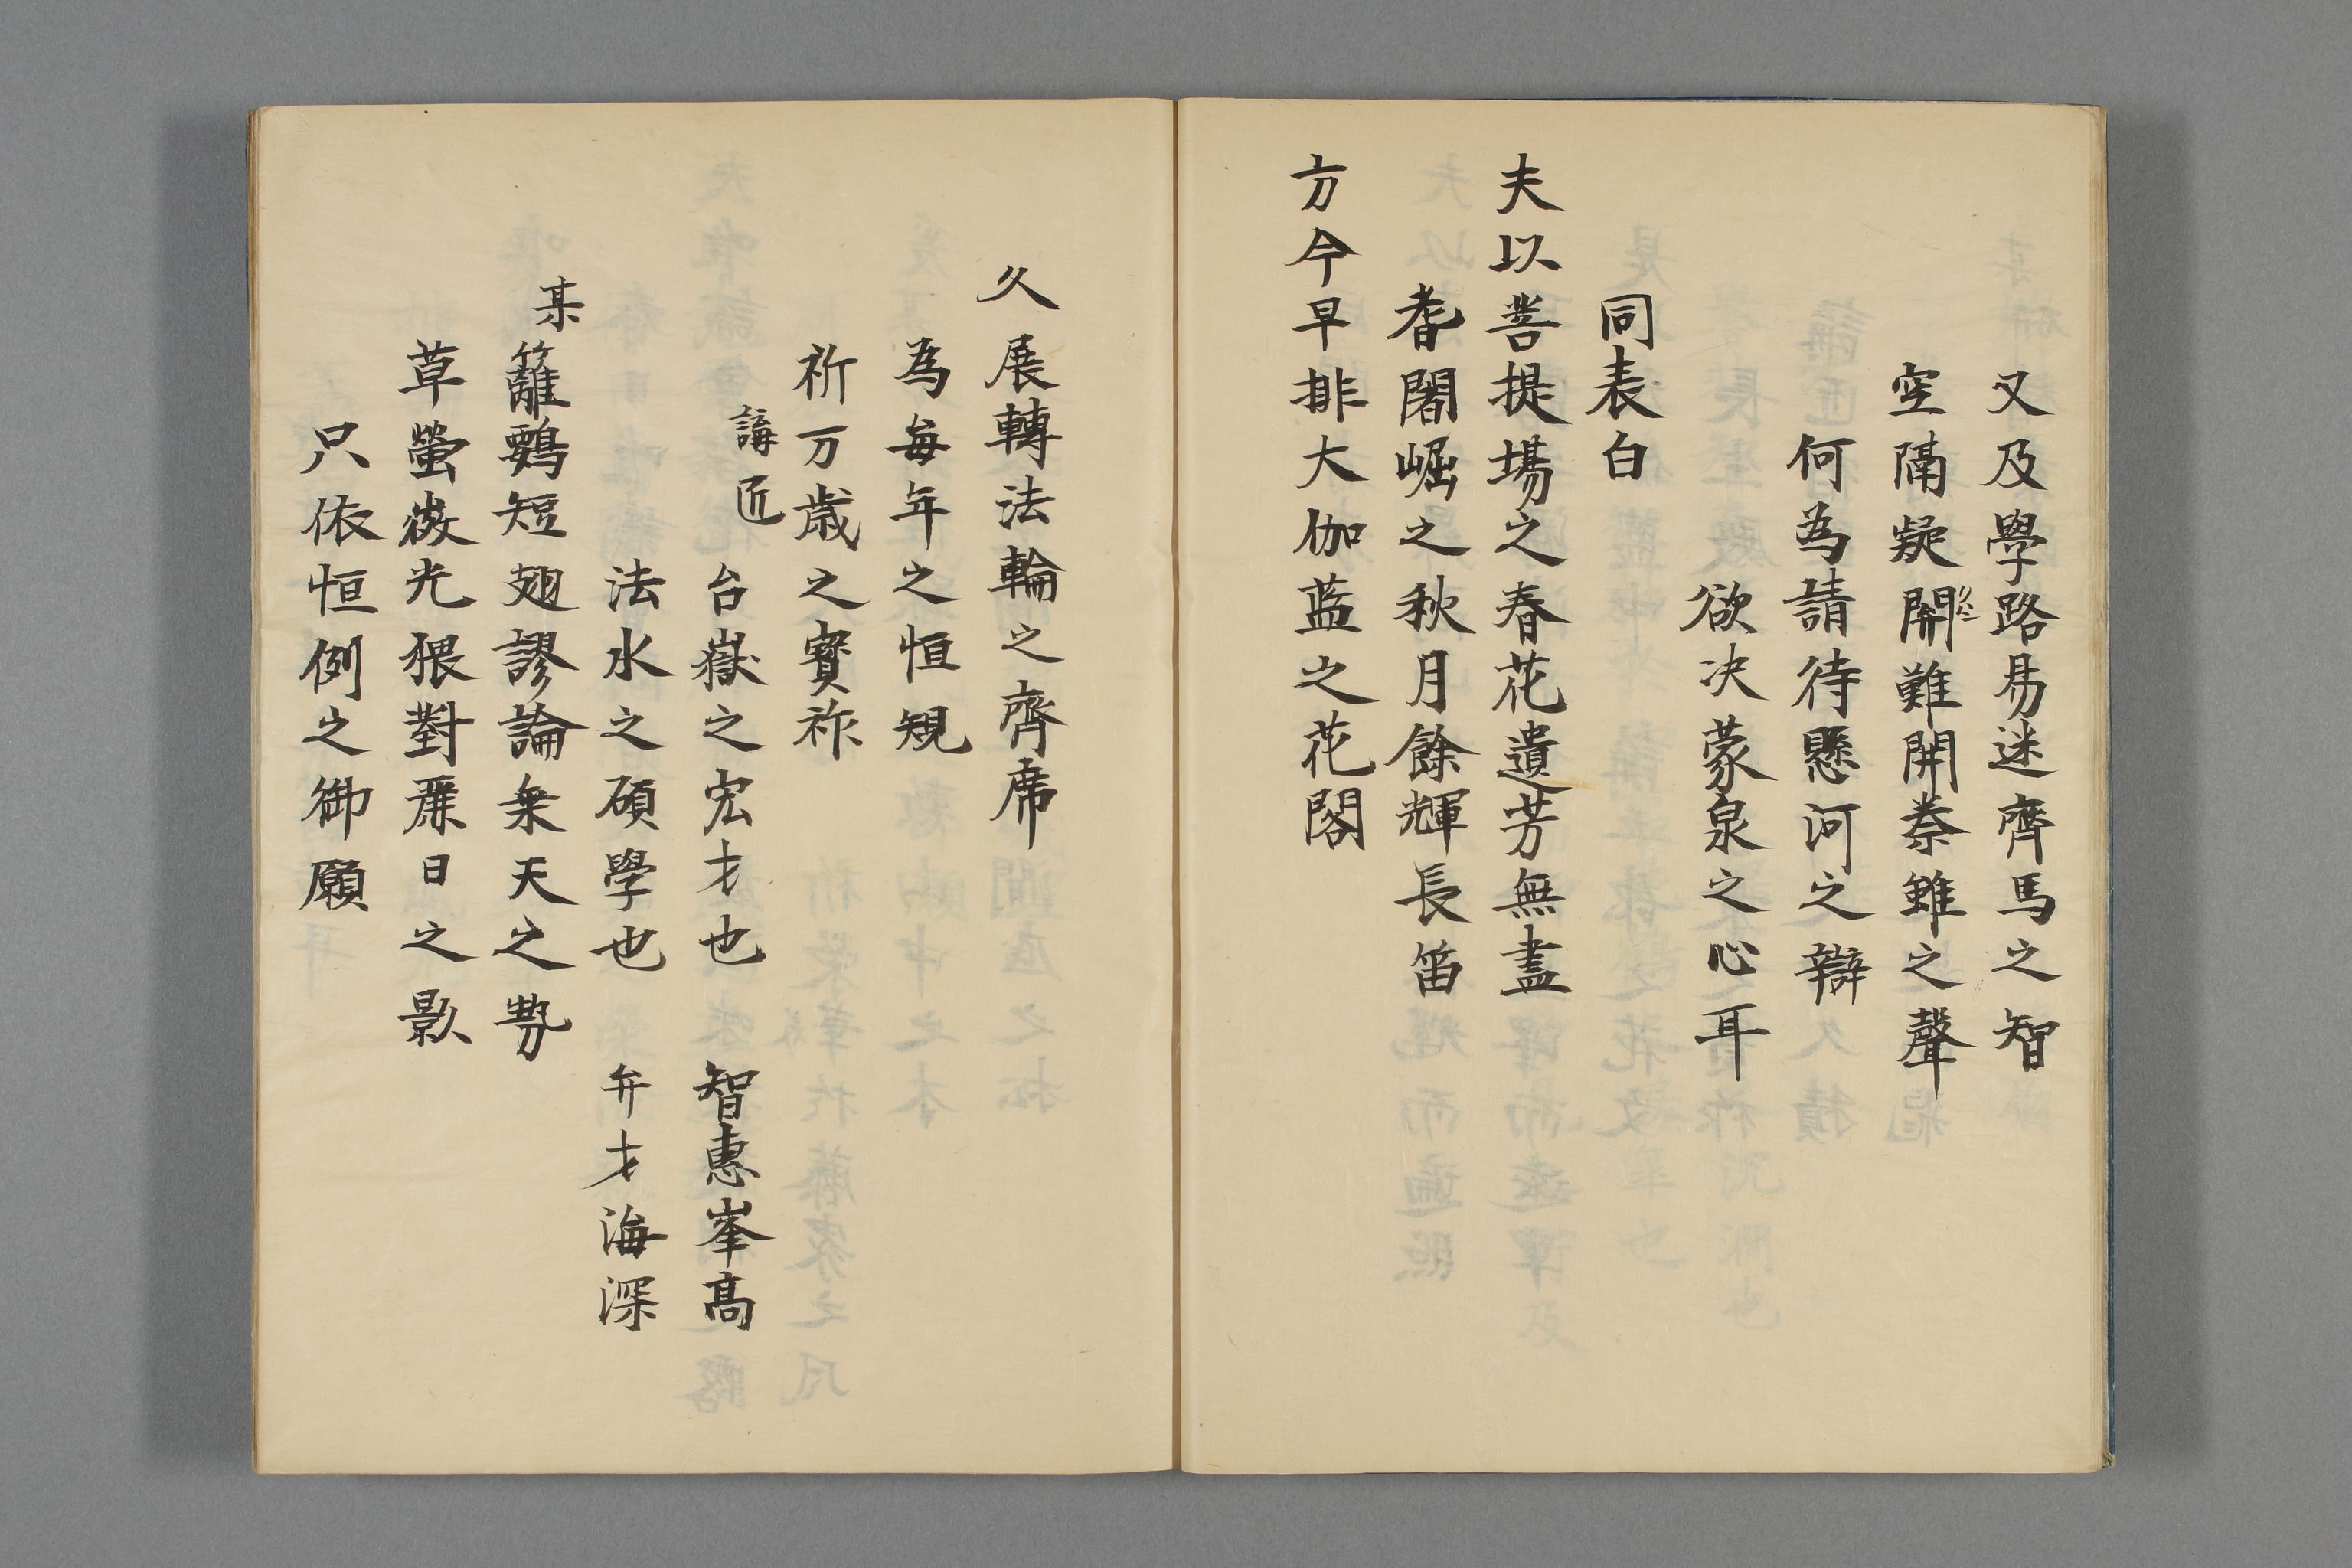 又及學路易迷齊馬之智
空隔疑關難開叅雖之聲
何為請待懸河之辯
欲决蒙泉之心耳
同表白
夫以菩提場之春花遺芳無盡
耆闍崛之秋月餘輝長笛
方今早排大伽蓝之花閣
久展轉法輪之齊席
為每年之恒規
祈万歳之寳祚
講匠
台嶽之宏才也 智惠峯高
法水之碩學也 弁才海深
某
籬鷃短翅謬論垂天之勢
草螢微光猥對麗日之影
只依恒例之御願